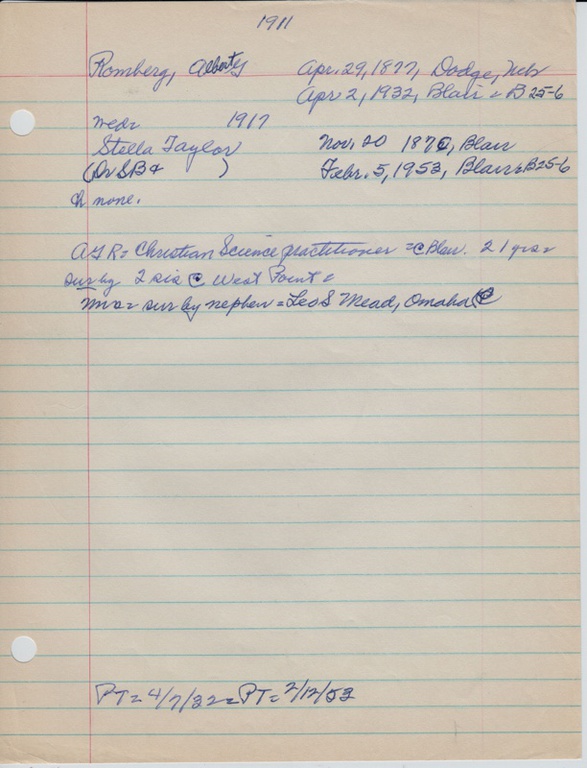 1911
Romberg, Albert
Apr. 29, 1877, Dodge, Neb
Apr 2, 1932, Blair = B 25-6
1917
Stella Taylor
Nov. 20 1870, Blair
(Dr S B & )
Febr. 5, 1953, Blair = B 25-6
Ch none.
= Christian Science practitioner = @ Blair. 21 yrs =
sur by 2 sis @ West Point =
Mrs = sur by nephew = Leo S Mead, Omaha
PT = 4/7/32 = PT = 2/12/53